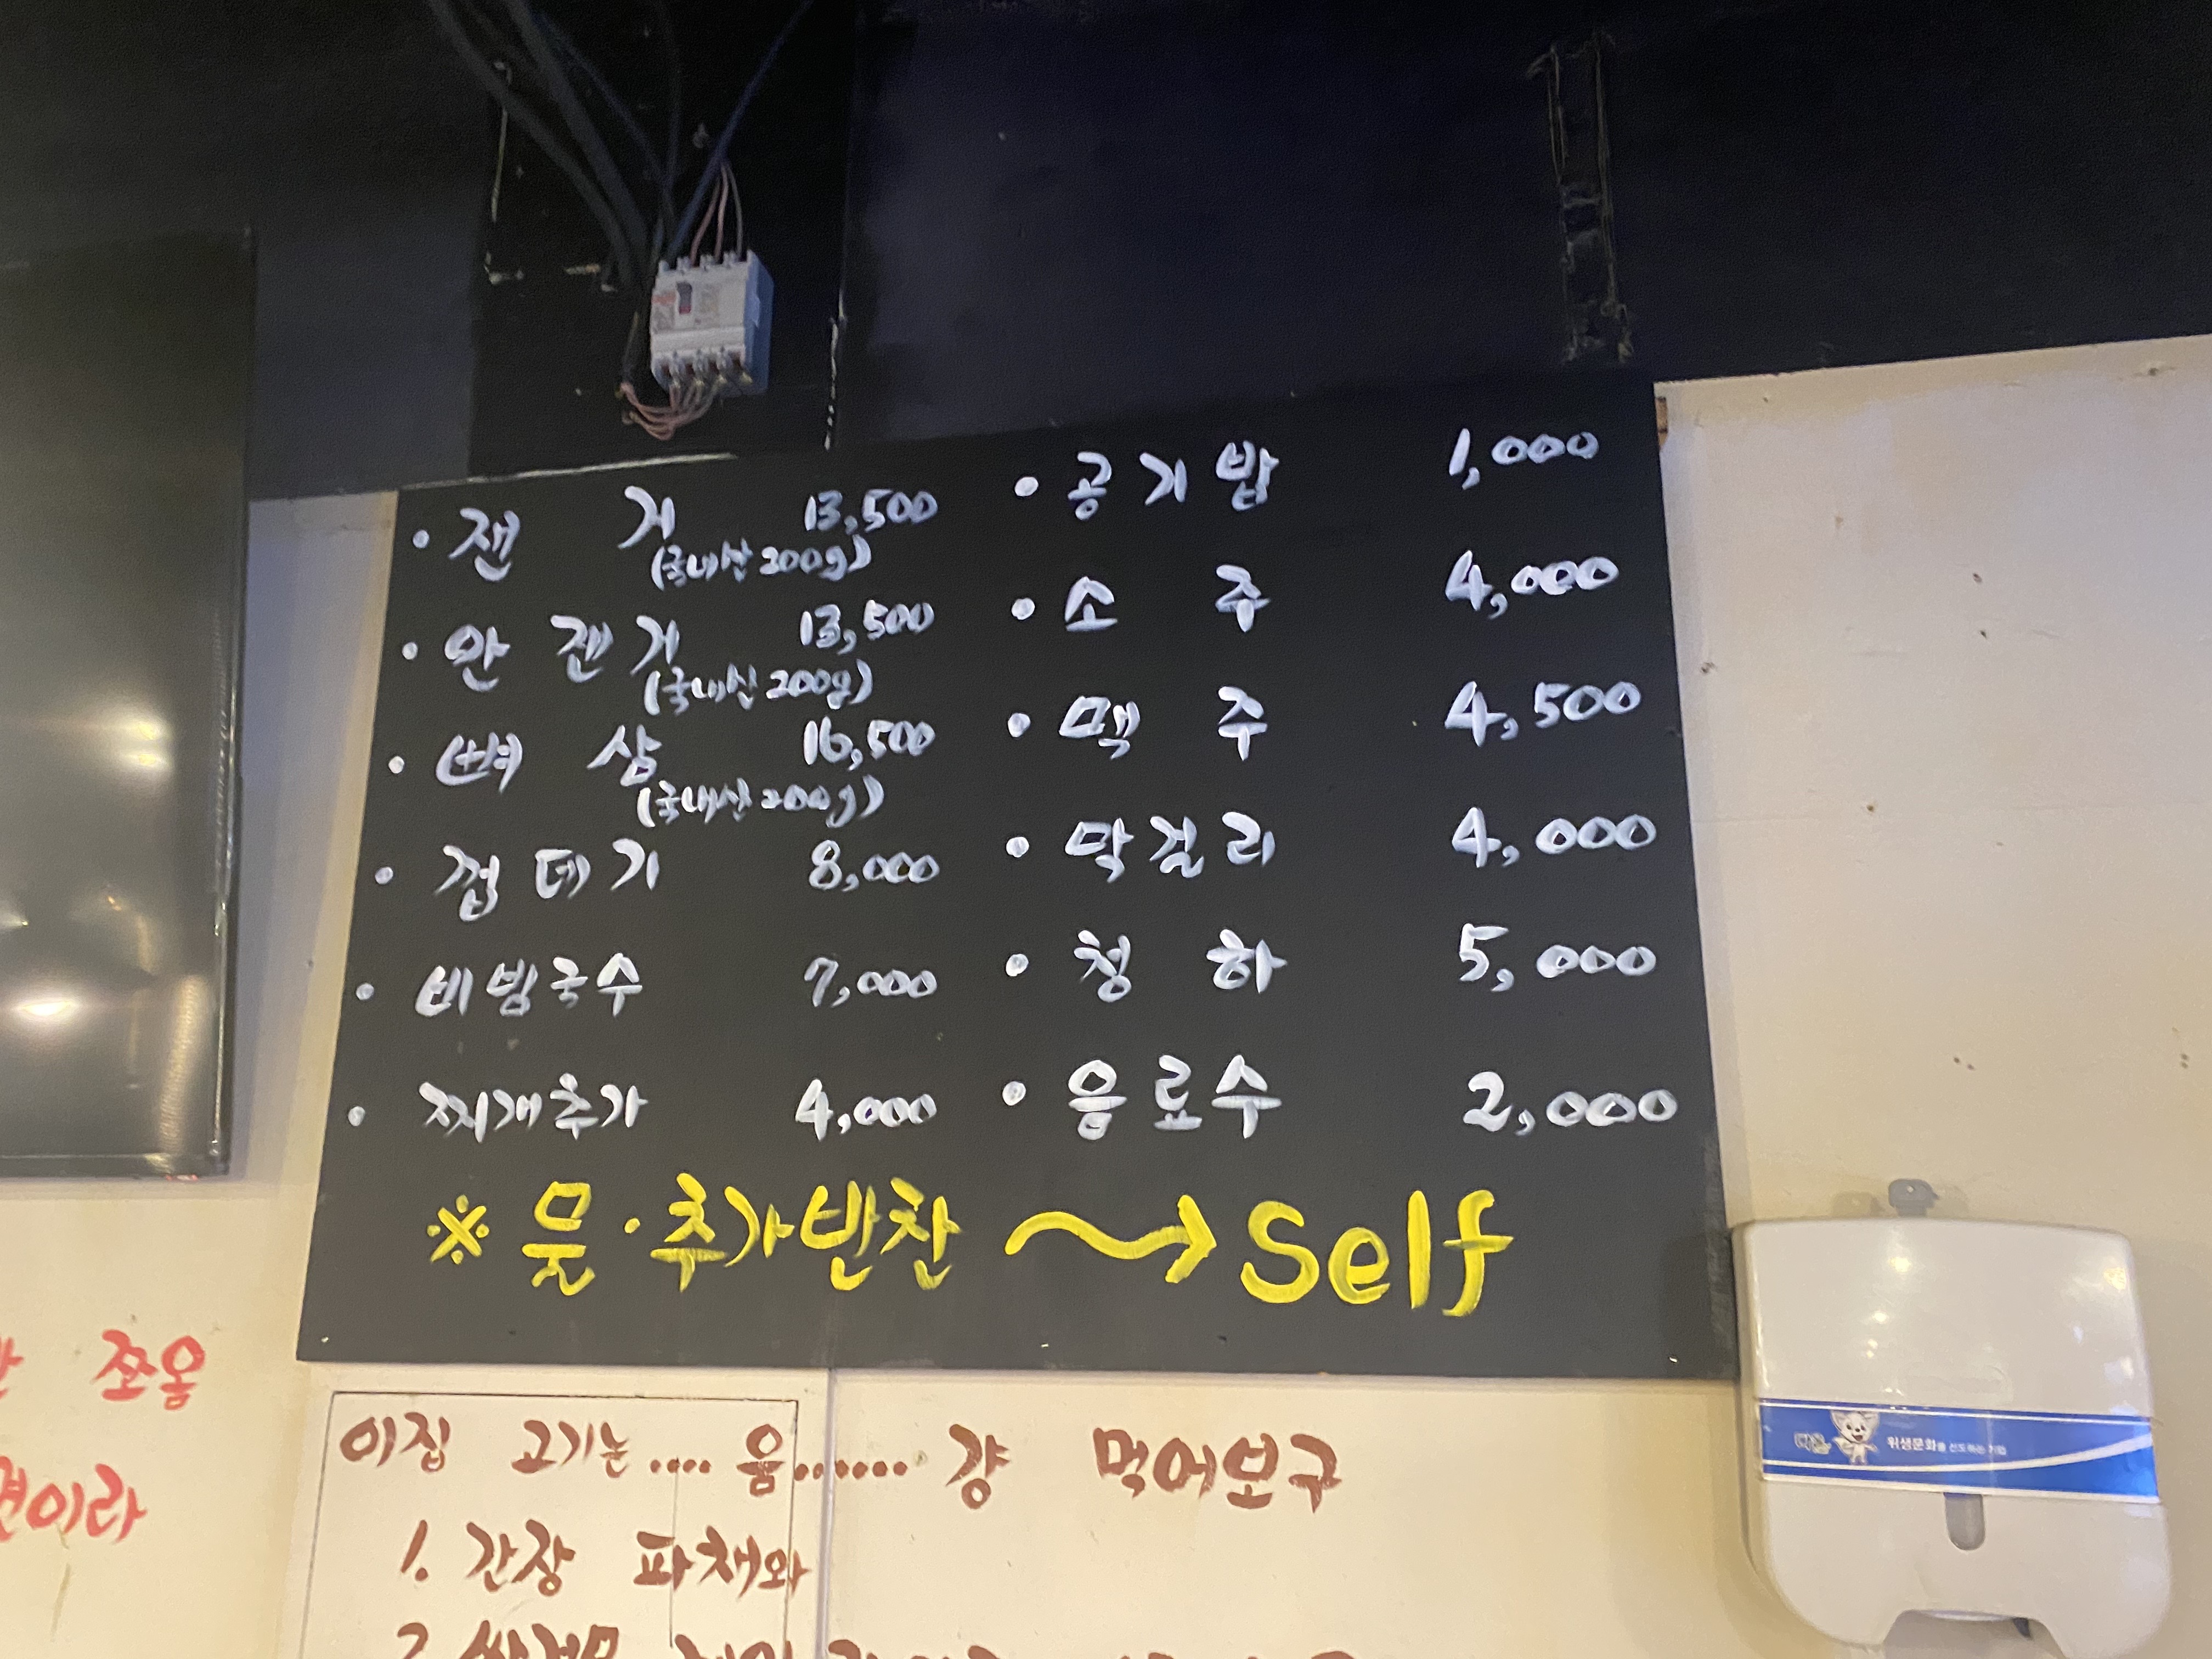 · 잰 거 13,500
(국내산 200g)
· 안 잰 거 13,500
(국내산 200g)
· 뼈 삼 16,500
(국내산 200g)
· 껍 데 기 8,000
· 비빔국수 7,000
· 찌개추가 4,000
· 공기밥 1,000
· 소 주 4,000
· 맥 주 4,500
· 막걸리 4,000
· 청 하 5,000
· 음료수 2,000
※ 물·추가반찬 ~→ Self
쪼옴
이라
이집 고기는.... 움....... 걍 먹어보구
1. 간장 파채와
2.
위생문화를 선도하는 기업